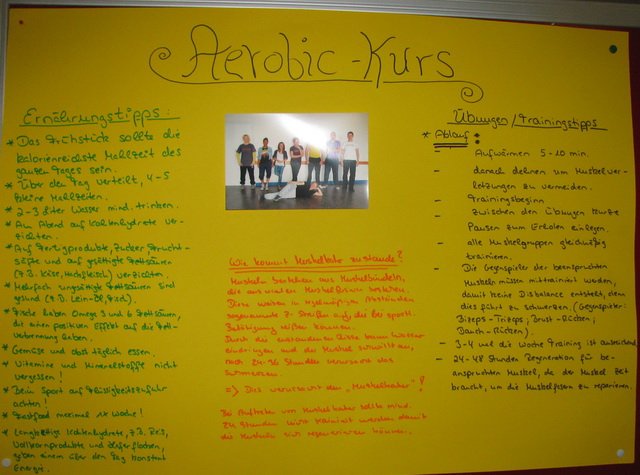 Aerobic-Kurs
Ernährungstipps:
* Das Frühstück sollte die
kalorienreichste Mahlzeit des
ganzen Tages sein.
* Über den Tag verteilt, 4-5
kleine Mahlzeiten.
* 2-3 Liter Wasser mind. trinken.
* Am Abend auf Kohlenhydrate ver-
zichten.
* Auf Fertigprodukte, Zucker, Frucht-
säfte und auf gesättigte Fettsäuren
(z.B. Käse, Hackfleisch) verzichten.
* Mehrfach ungesättigte Fettsäuren sind
gesund (z.B. Lein-Öl, Fisch).
* Fische haben Omega 3 und 6 Fettsäuren,
die einen positiven Effekt auf die Fett-
verbrennung haben.
* Gemüse und Obst täglich essen.
* Vitamine und Mineralstoffe nicht
vergessen!
* Beim Sport auf Flüssigkeitszufuhr
achten!
* Fastfood maximal 1x Woche!
* Langkettige Kohlenhydrate, z.B. Reis,
Vollkornprodukte und Haferflocken,
geben einem über den Tag konstant
Energie.
Wie kommt Muskelkater zustande?
Muskeln bestehen aus Muskelbündeln,
die aus vielen Muskelfasern bestehen.
Diese weisen in regelmäßigen Abständen
sogenannte Z-Streifen auf, die bei sportl.
Betätigung reißen können.
Durch die entstandenen Risse kann Wasser
eindringen und der Muskel schwillt an,
nach 24-36 Stunden verursacht das
Schmerzen.
=> Dies verursacht den "Muskelkater"!
Bei Auftreten von Muskelkater sollte mind.
24 Stunden nicht trainiert werden damit
die Muskeln sich regenerieren können.
Übungen/Trainingstipps
* Ablauf:
- Aufwärmen 5-10 min.
- danach dehnen um Muskelver-
letzungen zu vermeiden.
- Trainingsbeginn
- zwischen den Übungen kurze
Pausen zum Erholen einlegen.
- alle Muskelgruppen gleichmäßig
trainieren.
- Die Gegenspieler der beanspruchten
Muskeln müssen mittrainiert werden,
damit keine Disbalance entsteht, denn
dies führt zu Schmerzen. (Gegenspieler:
Bizeps-Trizeps, Brust-Rücken,
Bauch-Rücken)
- 3-4 mal die Woche Training ist ausreichend
- 24-48 Stunden Regeneration für be-
anspruchten Muskel, da der Muskel Zeit
braucht, um die Muskelfasern zu reparieren.